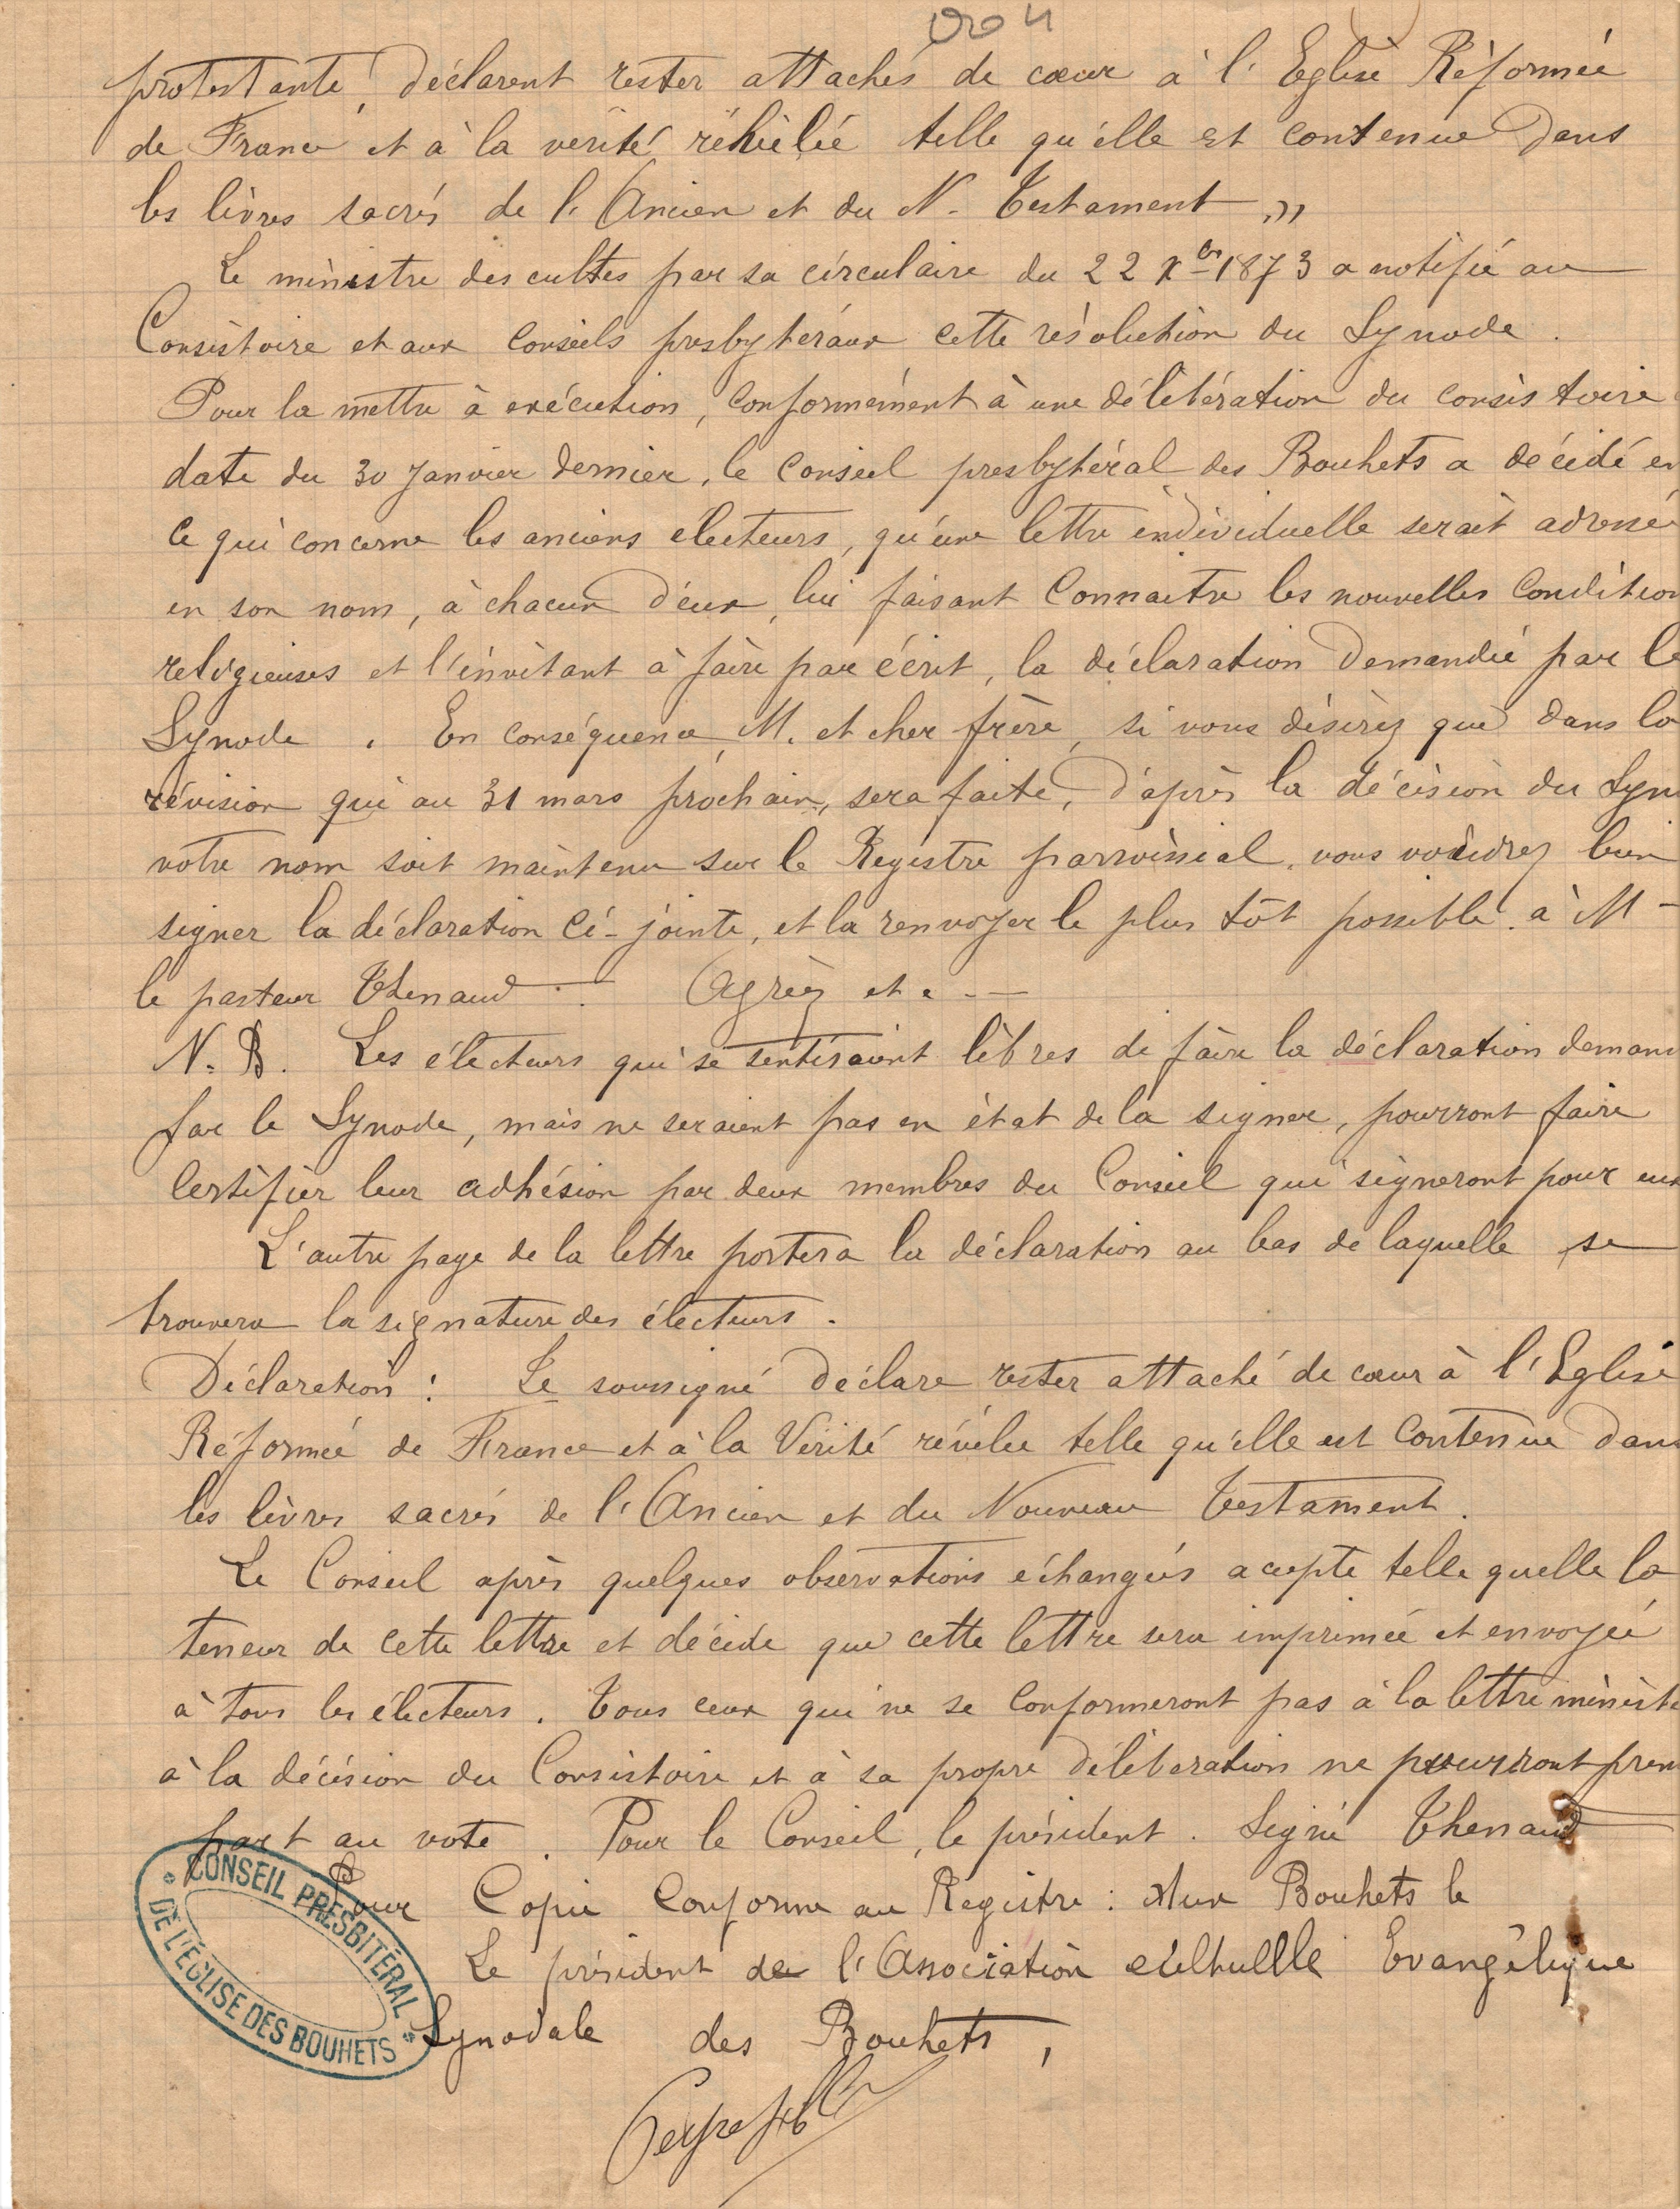 protestante, déclarent rester attachés de cœur à l'Eglise Réformée
de France et à la vérité révélée telle qu'elle est contenue dans
les livres sacrés de l'Ancien et du N. Testament »
Le ministre des cultes par sa circulaire du 22 Xbre 1873 a notifié au
Consistoire et aux Conseils presbytéraux cette résolution du Synode.
Pour la mettre à exécution, conformément à une délibération du consistoire
date du 30 Janvier dernier, le Conseil presbytéral des Bouhets a décidé en
ce qui concerne les anciens électeurs, qu'une lettre individuelle serait adressé
en son nom, à chacun d'eux, lui faisant Connaitre les nouvelles Condition
religieuses et l'invitant à faire par écrit, la déclaration demandée par le
Synode. En conséquence, M. et cher frère, si vous désirez que dans la
révision qui au 31 mars prochain, sera faite, d'après la décision du Syn
votre nom soit maintenu sur le Registre parroissial, vous voudrez bien
signer la déclaration Ci-jointe, et la renvoyer le plus tôt possible à M-
le pasteur Thenaud. Agréez etc --
N.B. Les électeurs qui se sentiraient libres de faire la déclaration deman
par le Synode, mais ne seraient pas en état de la signer, pourront faire
Certifier leur adhésion par deux membres du Conseil qui signeront pour eux
L'autre page de la lettre portera la déclaration au bas de laquelle se
trouvera la signature des électeurs.
Déclaration : Le soussigné déclare rester attaché de cœur à l'Eglise
Réformée de France et à la Vérité révélée telle qu'elle est Contenue dans
les livres sacrés de l'Ancien et du Nouveau Testament.
Le Conseil après quelques observations échangées accepte telle quelle la
teneur de cette lettre et décide que cette lettre sera imprimée et envoyée
à tous les électeurs. Tous ceux qui ne se Conformeront pas à la lettre ministé
à la décision du Consistoire et à sa propre délibération ne pourront pren
part au vote. Pour le Conseil, le président. Signé Thenaud
Pour Copie Conforme au Registre : Aux Bouhets le
Le président de l'Association Evangélique
Synodale des Bouhets,
CONSEIL PRESBITÉRAL
DE L'ÉGLISE DES BOUHETS